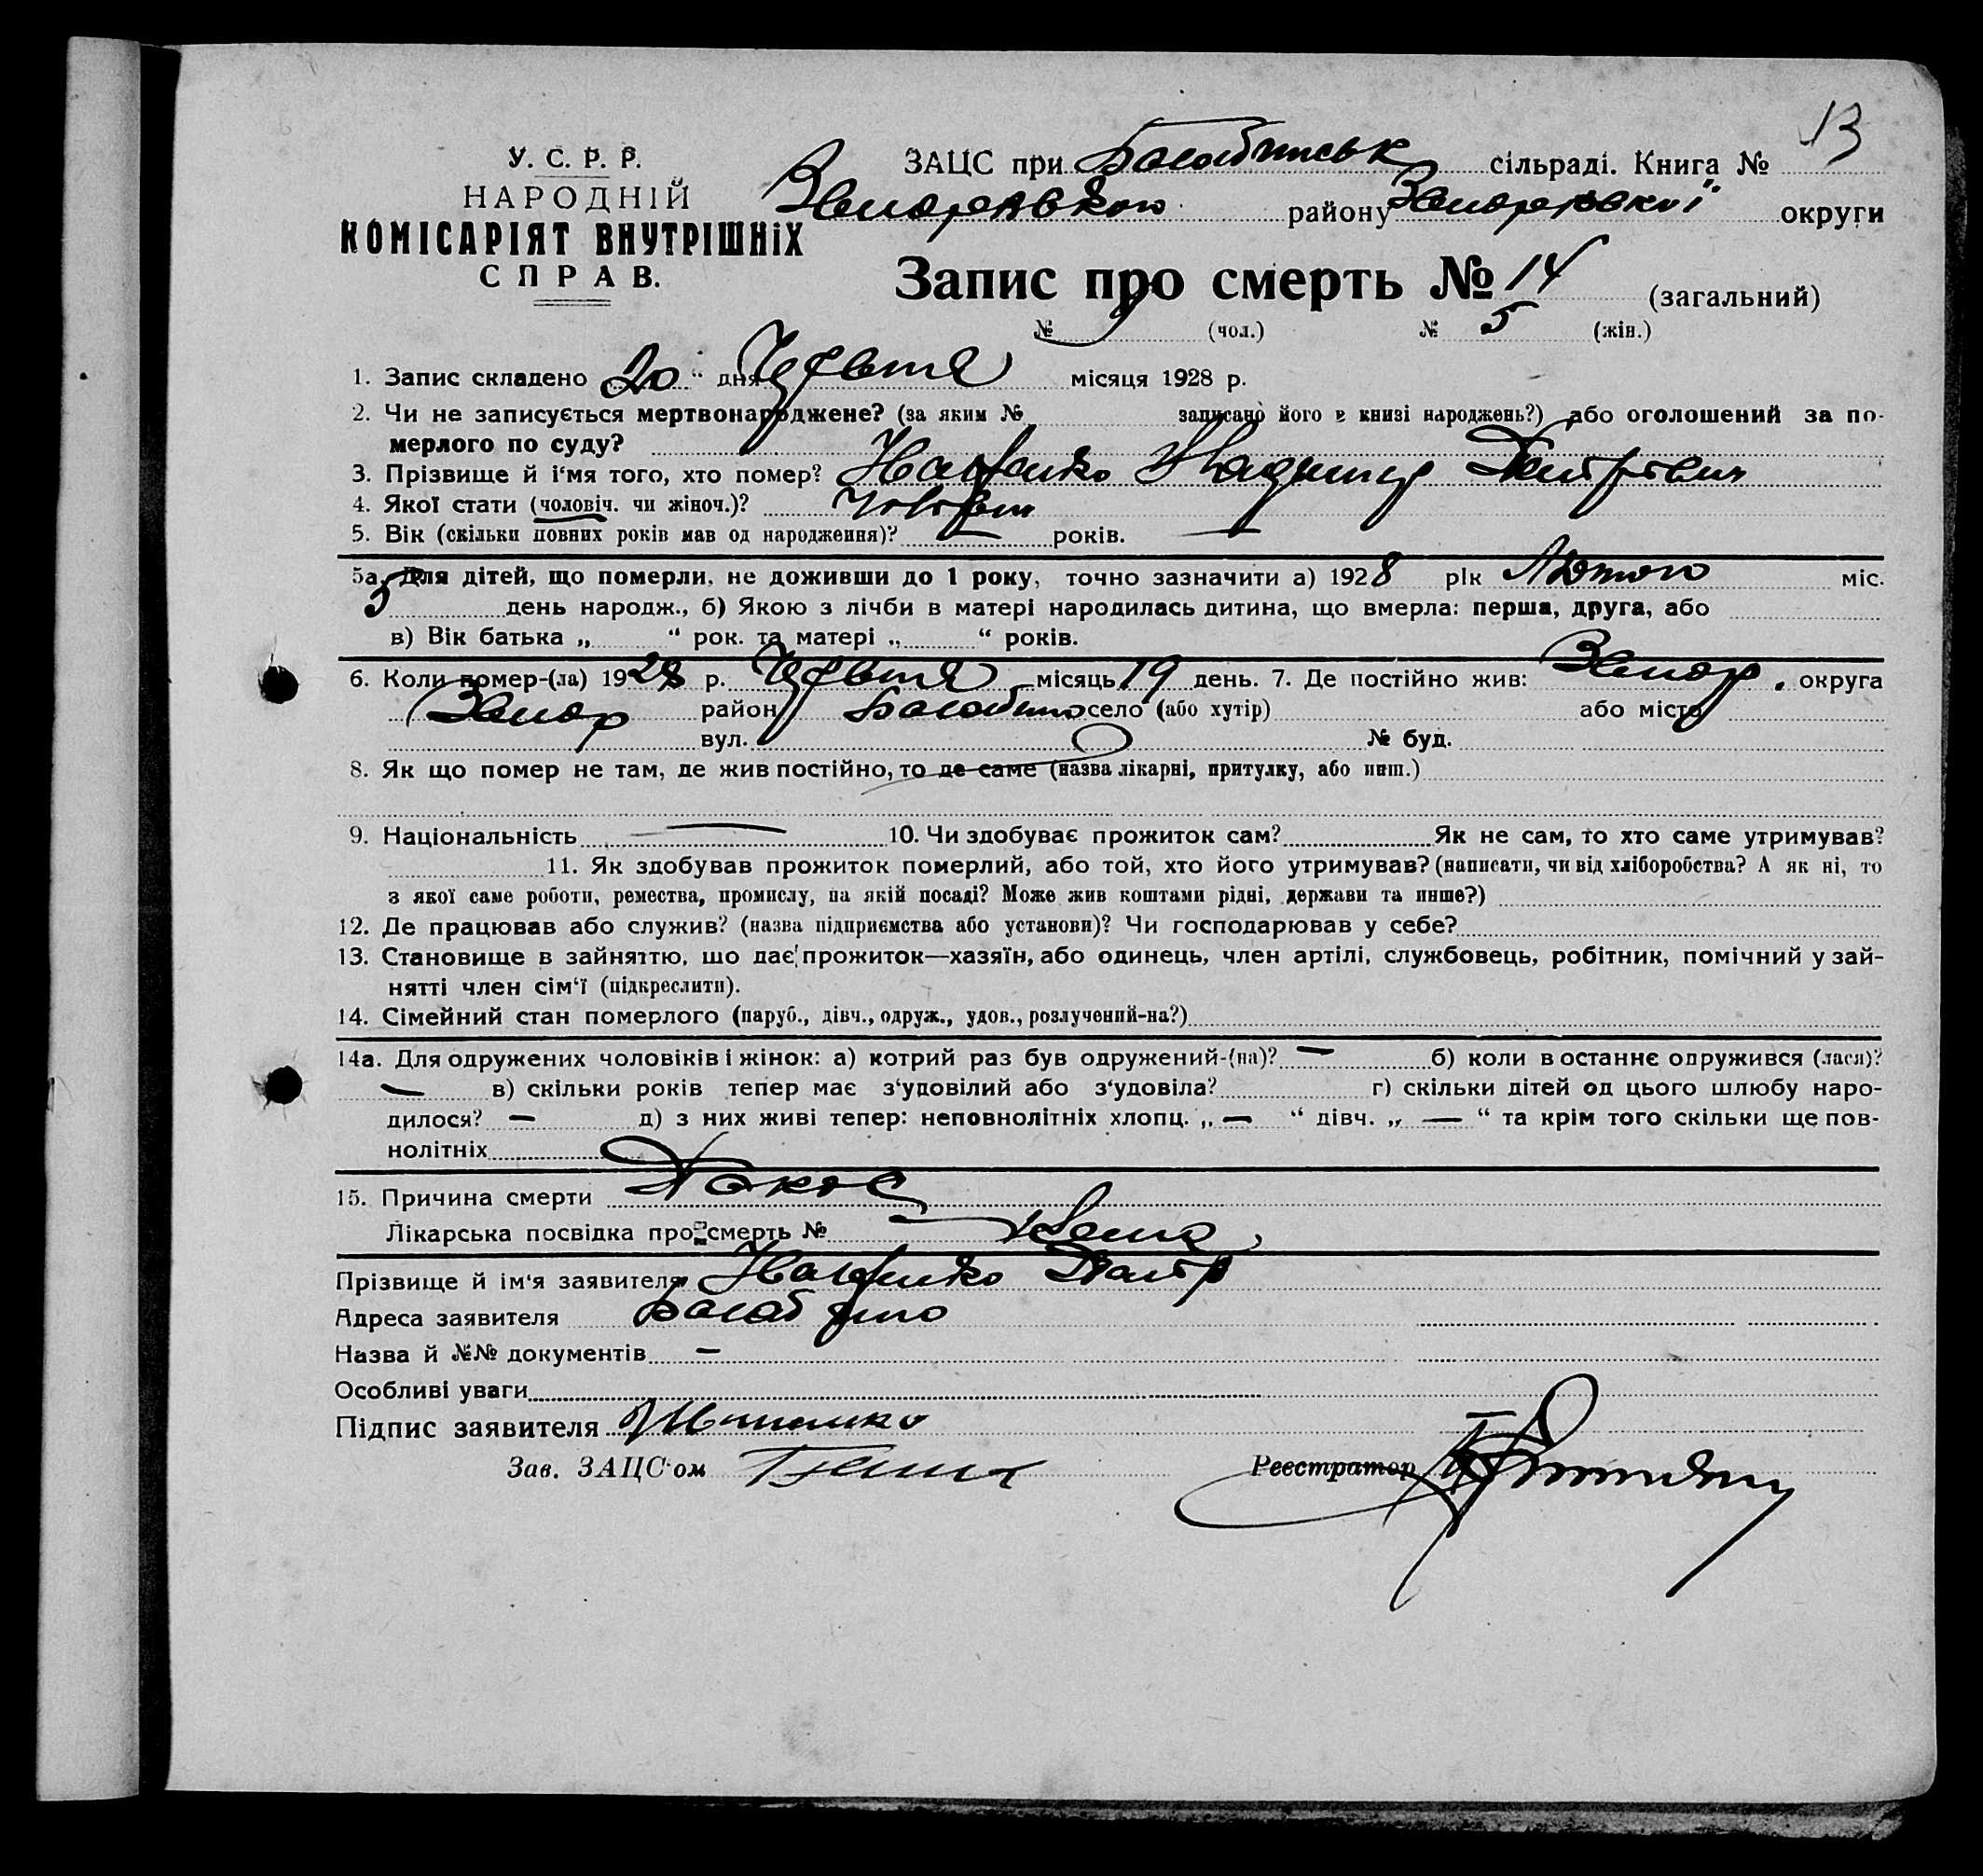 13
У. С. Р. Р.
НАРОДНІЙ
КОМІСАРІЯТ ВНУТРІШНІХ
СПРАВ.
ЗАЦС при Балабинськ сільраді. Книга №
району округи
Запис про смерть № 14 (загальний)
№ 9 (чол.) № 5 (жін.)
1. Запис складено 20 " дня Червня місяця 1928 р.
2. Чи не записується мертвонароджене? (за яким № записано його в книзі народжень?) або оголошений за по-
мерлого по суду?
3. Прізвище й і'мя того, хто помер?
4. Якої стати (чоловіч. чи жіноч.)?
5. Вік (скільки повних років мав од народження)? — років. —
5а. Для дітей, що померли, не доживши до 1 року, точно зазначити а) 1928 рік Лютого міс.
5 день народж., б) Якою з лічби в матері народилась дитина, що вмерла: перша, друга, або
в) Вік батька „ “ рок. та матері „ “ років.
6. Коли помер-(ла) 1928 р. Червня місяць 19 день. 7. Де постійно жив: Запор. округа
Запор район Балабино село (або хутір) або місто
вул. № буд.
8. Як що помер не там, де жив постійно, то де саме (назва лікарні, притулку, або инш.)
9. Національність — 10. Чи здобуває прожиток сам? Як не сам, то хто саме утримував?
11. Як здобував прожиток померлий, або той, хто його утримував? (написати, чи від хліборобства? А як ні, то
з якої саме роботи, ремества, промислу, на якій посаді? Може жив коштами рідні, держави та инше?)
12. Де працював або служив? (назва підприємства або установи)? Чи господарював у себе?
13. Становище в зайняттю, що дає прожиток—хазяїн, або одинець, член артілі, службовець, робітник, помічний у зай-
нятті член сім‘ї (підкреслити).
14. Сімейний стан померлого (паруб., дівч., одруж., удов., розлучений-на?)
14а. Для одружених чоловіків і жінок: а) котрий раз був одружений-(на)? — б) коли в останнє одружився (лася)?
— в) скільки років тепер має з‘удовілий або з‘удовіла? г) скільки дітей од цього шлюбу наро-
дилося? — д) з них живі тепер: неповнолітніх хлопц. „ — “ дівч. „ — “ та крім того скільки ще пов-
нолітніх
15. Причина смерти
Лікарська посвідка про смерть №
Прізвище й ім‘я заявителя
Адреса заявителя Балабино
Назва й №№ документів —
Особливі уваги
Підпис заявителя
Зав. ЗАЦС‘ом Реєстратор